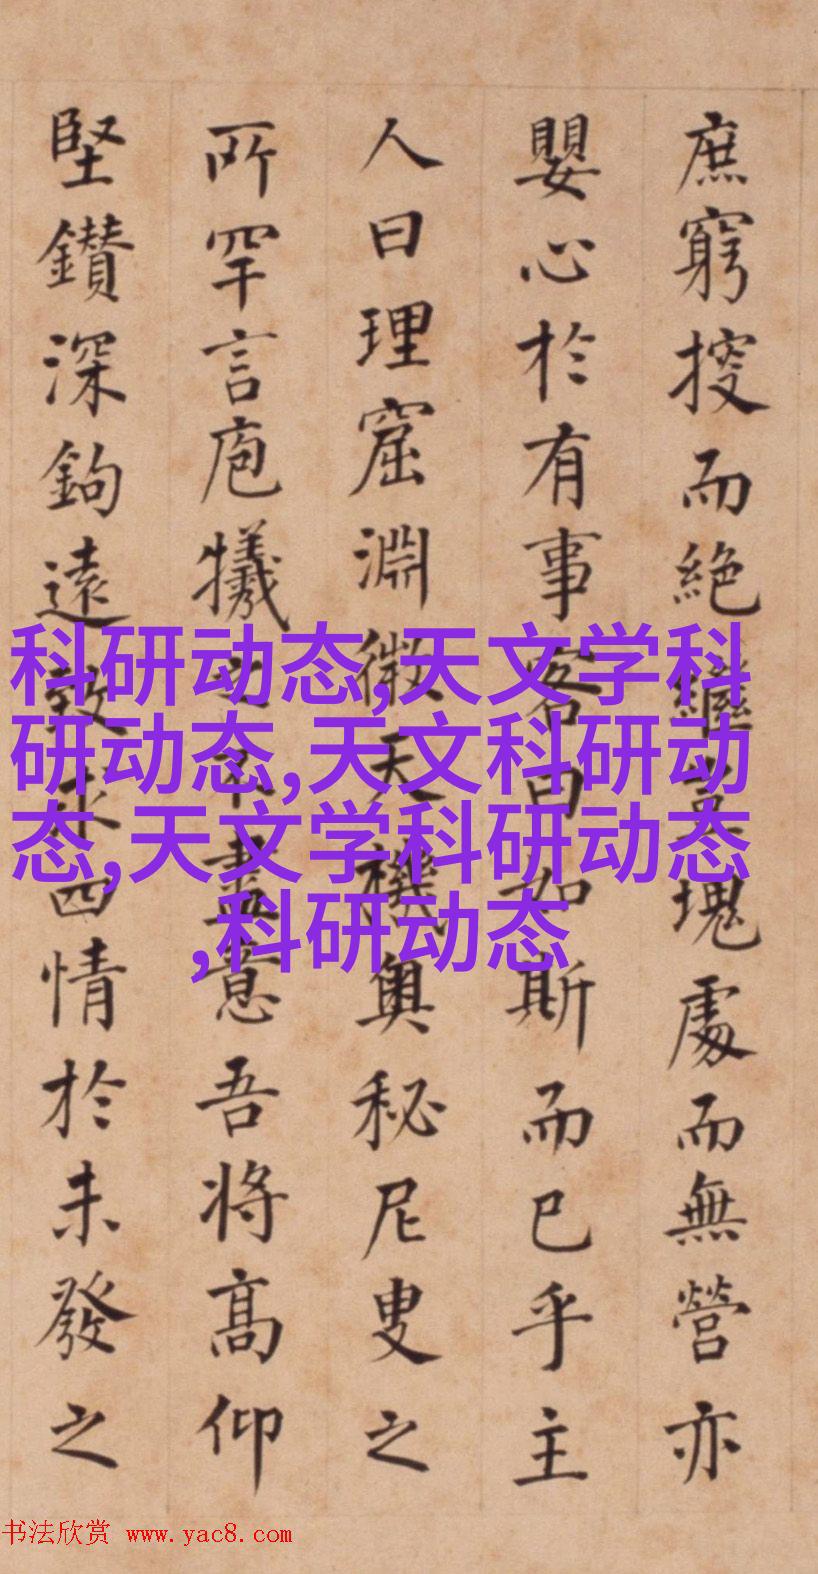 庶窮而絕塊處而無營亦
嬰心於有事客曰如斯而已乎主
人曰理窟淵微天機奧秘尼叟之
所罕言庖犧之不盡意吾將高仰
堅鑽深鉤遠致求四情於未發之
科研动态,天文学科
研动态,天文科研动
态,天文学科研动态
,科研动态
书法欣赏 www.yac8.com